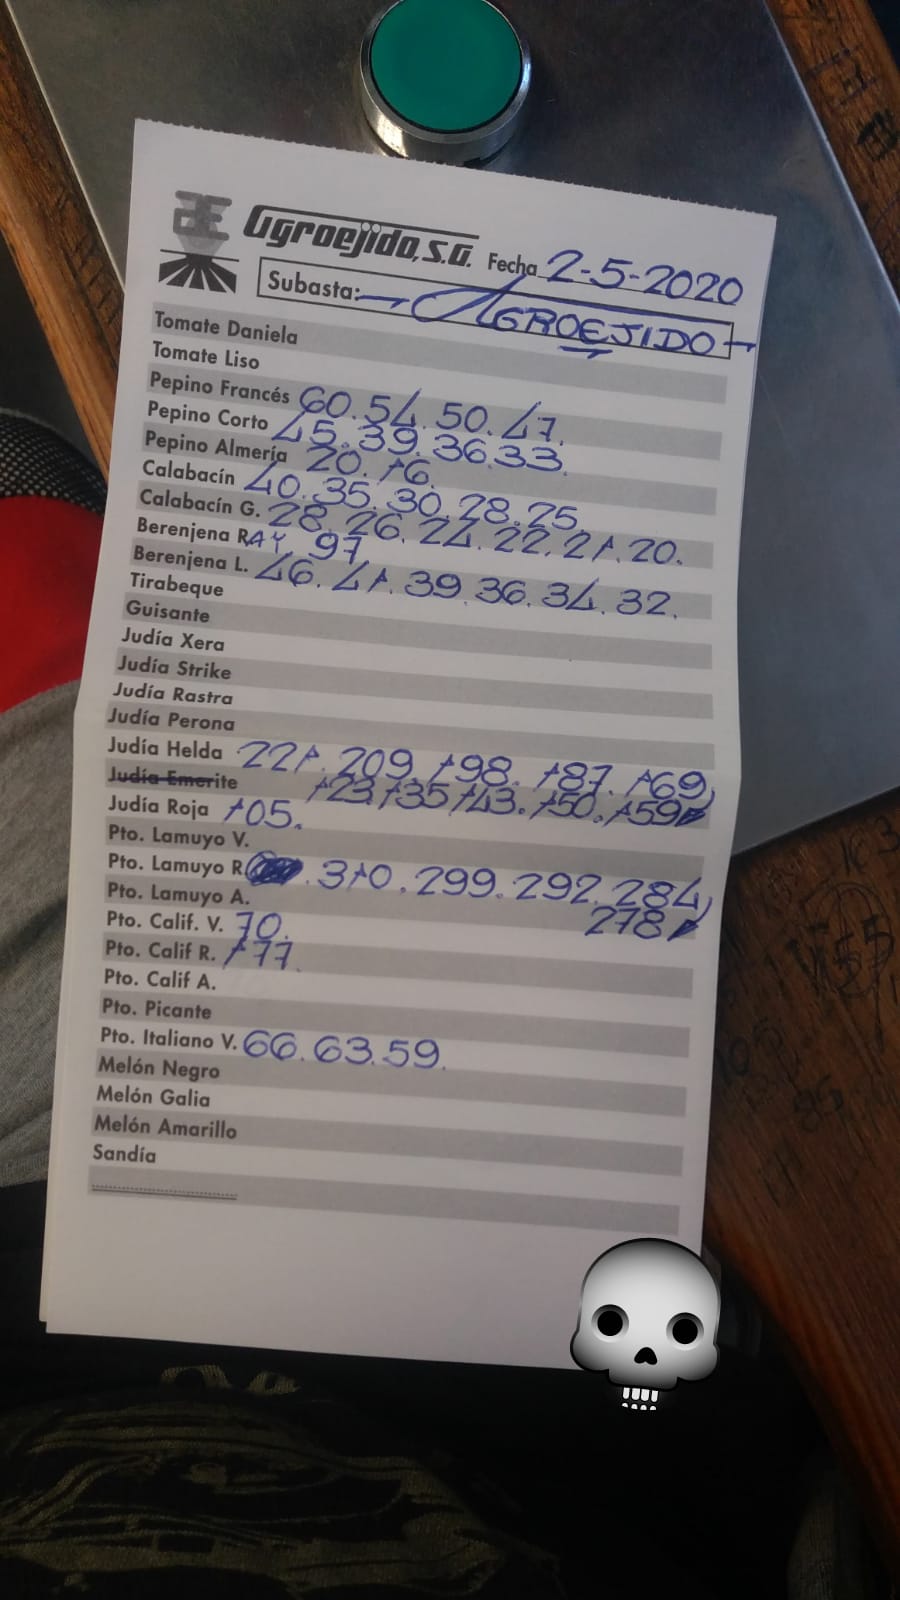 Agroejido, S.A. Fecha 2-5-2020
Subasta: AGROEJIDO
Tomate Daniela
Tomate Liso
Pepino Francés 60. 54. 50. 47.
Pepino Corto 45. 39. 36. 33.
Pepino Almería 20. 16.
Calabacín 40. 35. 30. 28. 25.
Calabacín G. 28. 26. 24. 22. 21. 20.
Berenjena RAY 97
Berenjena L. 46. 41. 39. 36. 34. 32.
Tirabeque
Guisante
Judía Xera
Judía Strike
Judía Rastra
Judía Perona
Judía Helda 221. 209. 198. 187. 169
Judía Emerite 123. 135 143. 150. 159
Judía Roja 105.
Pto. Lamuyo V.
Pto. Lamuyo R . 310. 299. 292. 284
Pto. Lamuyo A. 278
Pto. Calif. V. 70.
Pto. Calif R. 177.
Pto. Calif A.
Pto. Picante
Pto. Italiano V. 66. 63. 59.
Melón Negro
Melón Galia
Melón Amarillo
Sandía